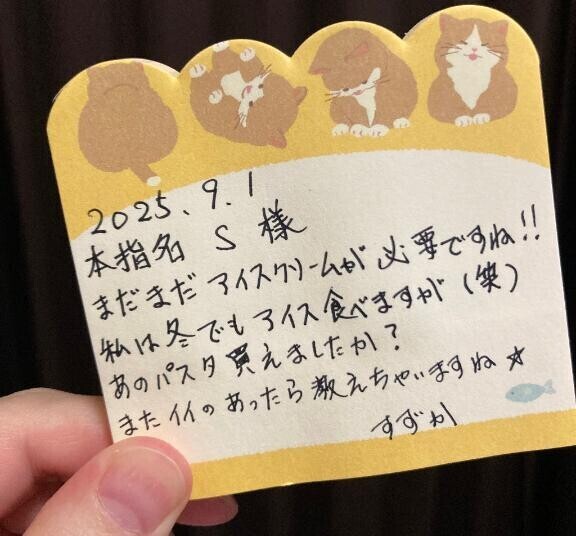 2025.9.1
本指名 S 様
まだまだ アイスクリームが 必要ですね!!
私は冬でもアイス食べますが(笑)
あのパスタ買えましたか?
またイイのあったら教えちゃいますね☆
すずか